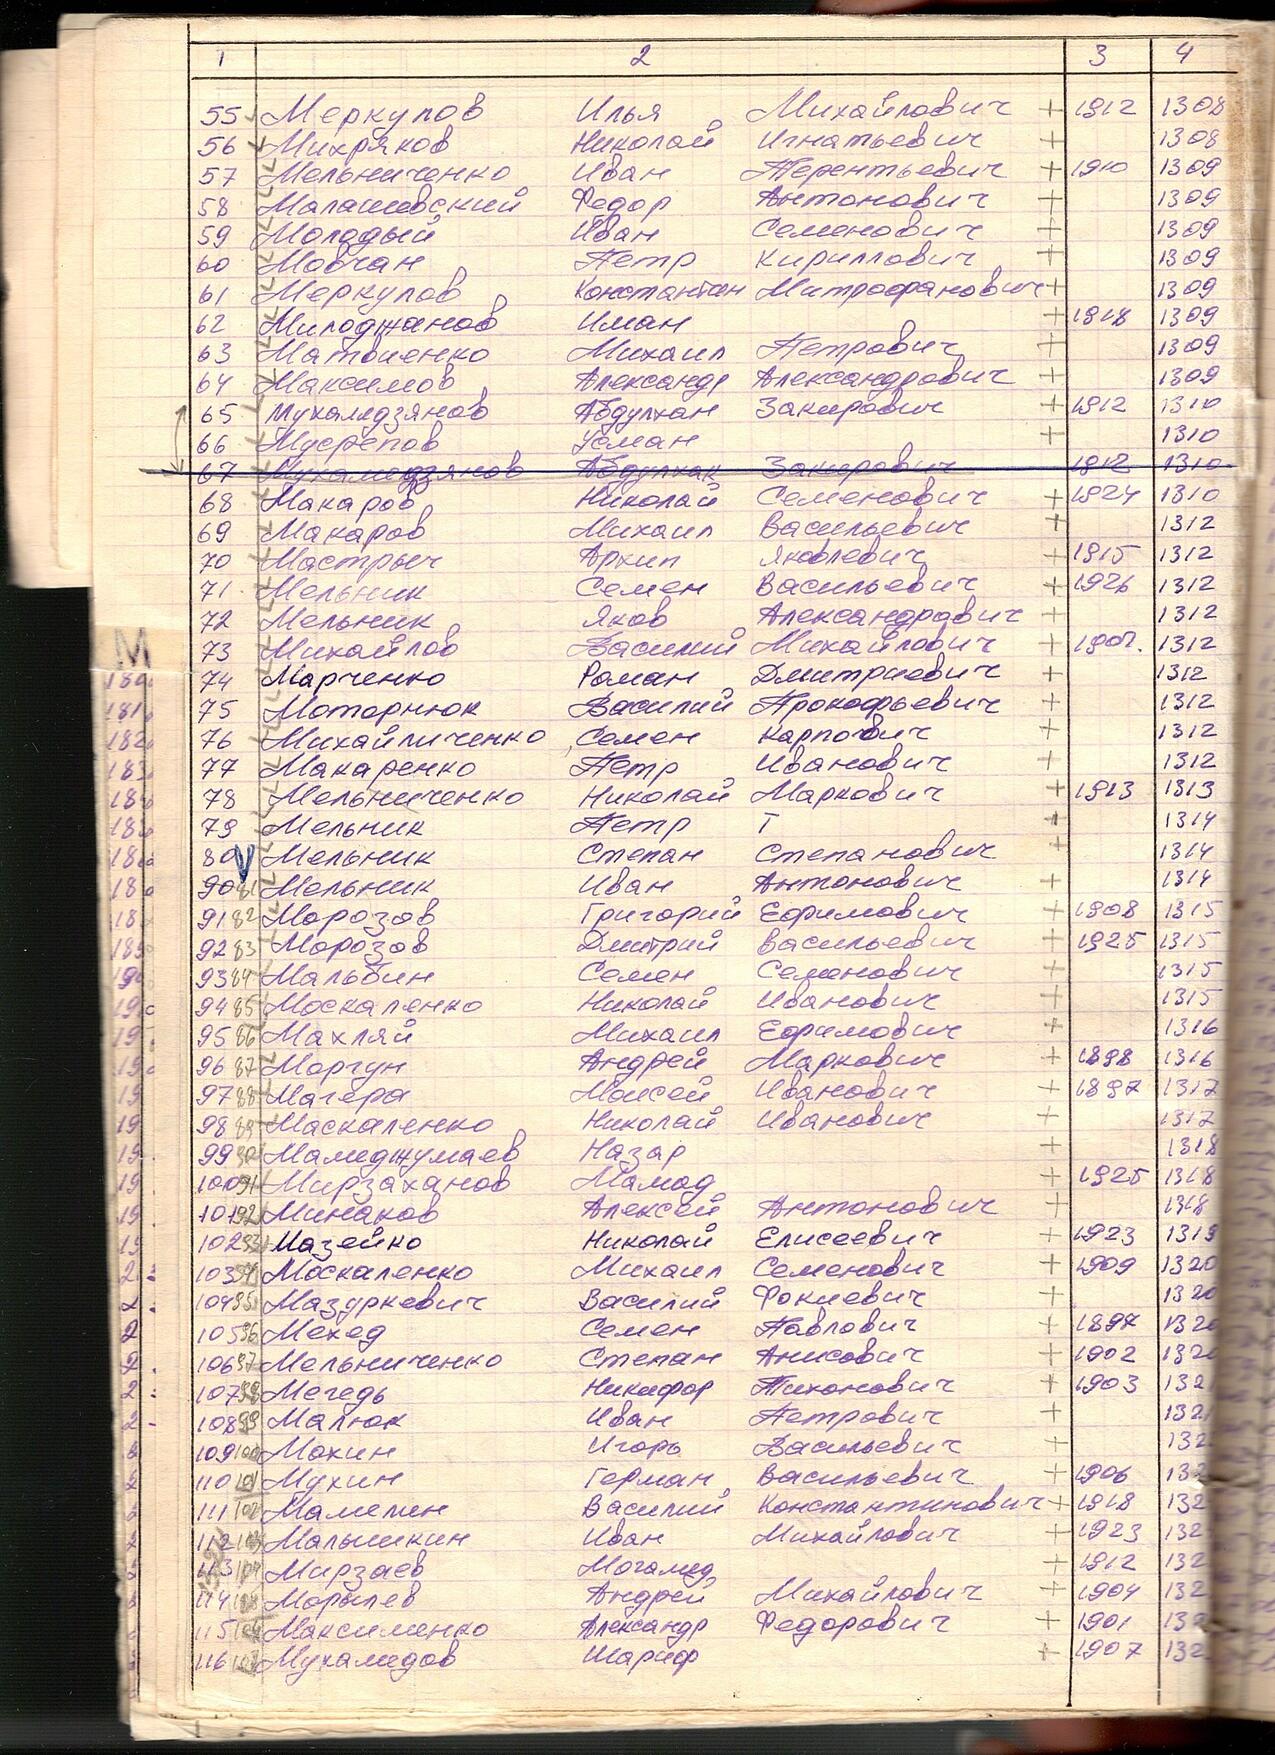 1 2 3 4
55 Меркулов Илья Михайлович + 1912 1308
56 Михряков Николай Игнатьевич + 1308
57 Мельниченко Иван Терентьевич + 1910 1309
58 Малашевский Федор Антонович + 1309
59 Молодый Иван Семенович + 1309
60 Мовчан Петр Кириллович + 1309
61 Меркулов Константин Митрофанович + 1309
62 Милоджанов Иман + 1918 1309
63 Матвиенко Михаил Петрович + 1309
64 Максимов Александр Александрович + 1309
65 Мухамедзянов Абдулхан Закирович + 1912 1310
66 Мусрепов Усман + 1310
67 Мухамедзянов Абдулхак Закирович 1912 1310
68 Макаров Николай Семенович + 1924 1310
69 Макаров Михаил Васильевич + 1312
70 Мастрыч Архип Яковлевич + 1915 1312
71 Мельник Семен Васильевич + 1926 1312
72 Мельник Яков Александрович + 1312
73 Михайлов Василий Михайлович + 1312
М
74 Марченко Роман Дмитриевич + 1312
75 Моторнюк Василий Прокофьевич + 1312
76 Михайличенко Семен Карпович + 1312
77 Макаренко Петр Иванович + 1312
78 Мельниченко Николай Маркович + 1913 1313
79 Мельник Петр Т + 1314
80 Мельник Степан Степанович + 1314
90 81 Мельник Иван Антонович + 1314
91 82 Морозов Григорий Ефимович + 1908 1315
92 83 Морозов Дмитрий Васильевич + 1925 1315
93 84 Мальбин Семен Семенович + 1315
94 85 Москаленко Николай Иванович + 1315
95 86 Махляй Михаил Ефимович + 1316
96 87 Моргун Андрей Маркович + 1898 1316
97 88 Магера Моисей Иванович + 1897 1317
98 89 Маскаленко Николай Иванович + 1317
99 90 Мамеджумаев Назар + 1318
100 91 Мирзаханов Мамад + 1925 1318
101 92 Минаков Алексей Антонович + 1318
102 93 Мазейко Николай Елисеевич + 1923 1319
103 94 Москаленко Михаил Семенович + 1909 1320
104 95 Мазуркевич Василий Фокиевич + 1320
105 96 Мехед Семен Павлович + 1897 1320
106 97 Мельниченко Степан Анисович + 1902 132
107 98 Мегедь Никифор Тихонович + 1903 132
108 99 Малюк Иван Петрович + 132
109 100 Мохин Игорь Васильевич + 132
110 101 Мухин Герман Васильевич + 1906 132
111 102 Мамелин Василий Константинович + 1918 132
112 103 Малышкин Иван Михайлович + 1923 132
113 104 Мирзаев Могамед + 1912 132
114 105 Морылев Андрей Михайлович + 1904 132
115 106 Максименко Александр Федорович + 1901 132
116 107 Мухамедов Шариф + 1907 132